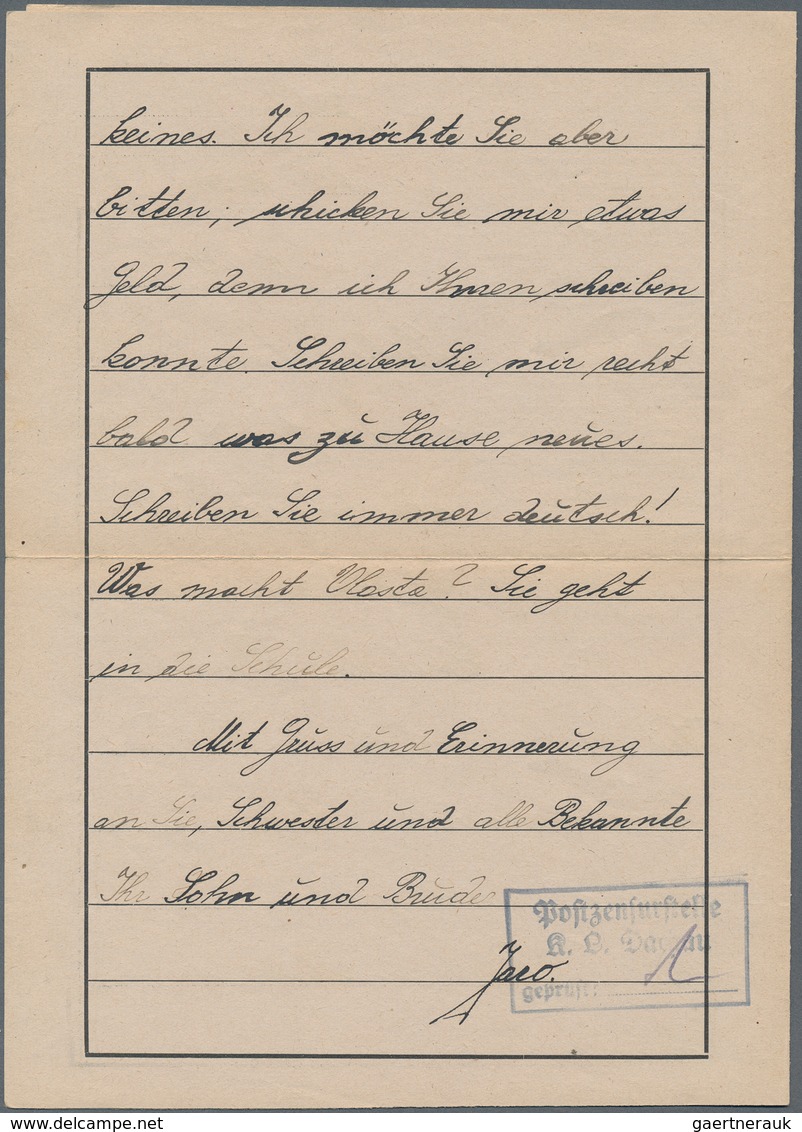 keines. Ich möchte Sie aber
bitten, schicken Sie mir etwas
Geld, denn ich Ihnen schreiben
konnte. Schreiben Sie mir recht
bald was zu Hause neues.
Schreiben Sie immer deutsch!
Was macht Vlasta? Sie geht
in die Schule.
Mit Gruss und Erinnerung
an Sie, Schwester und alle Bekannte
Ihr Sohn und Bruder
Jaro.
Postzensurstelle
K. L. Dachau
geprüft: 1
gaertnerauk